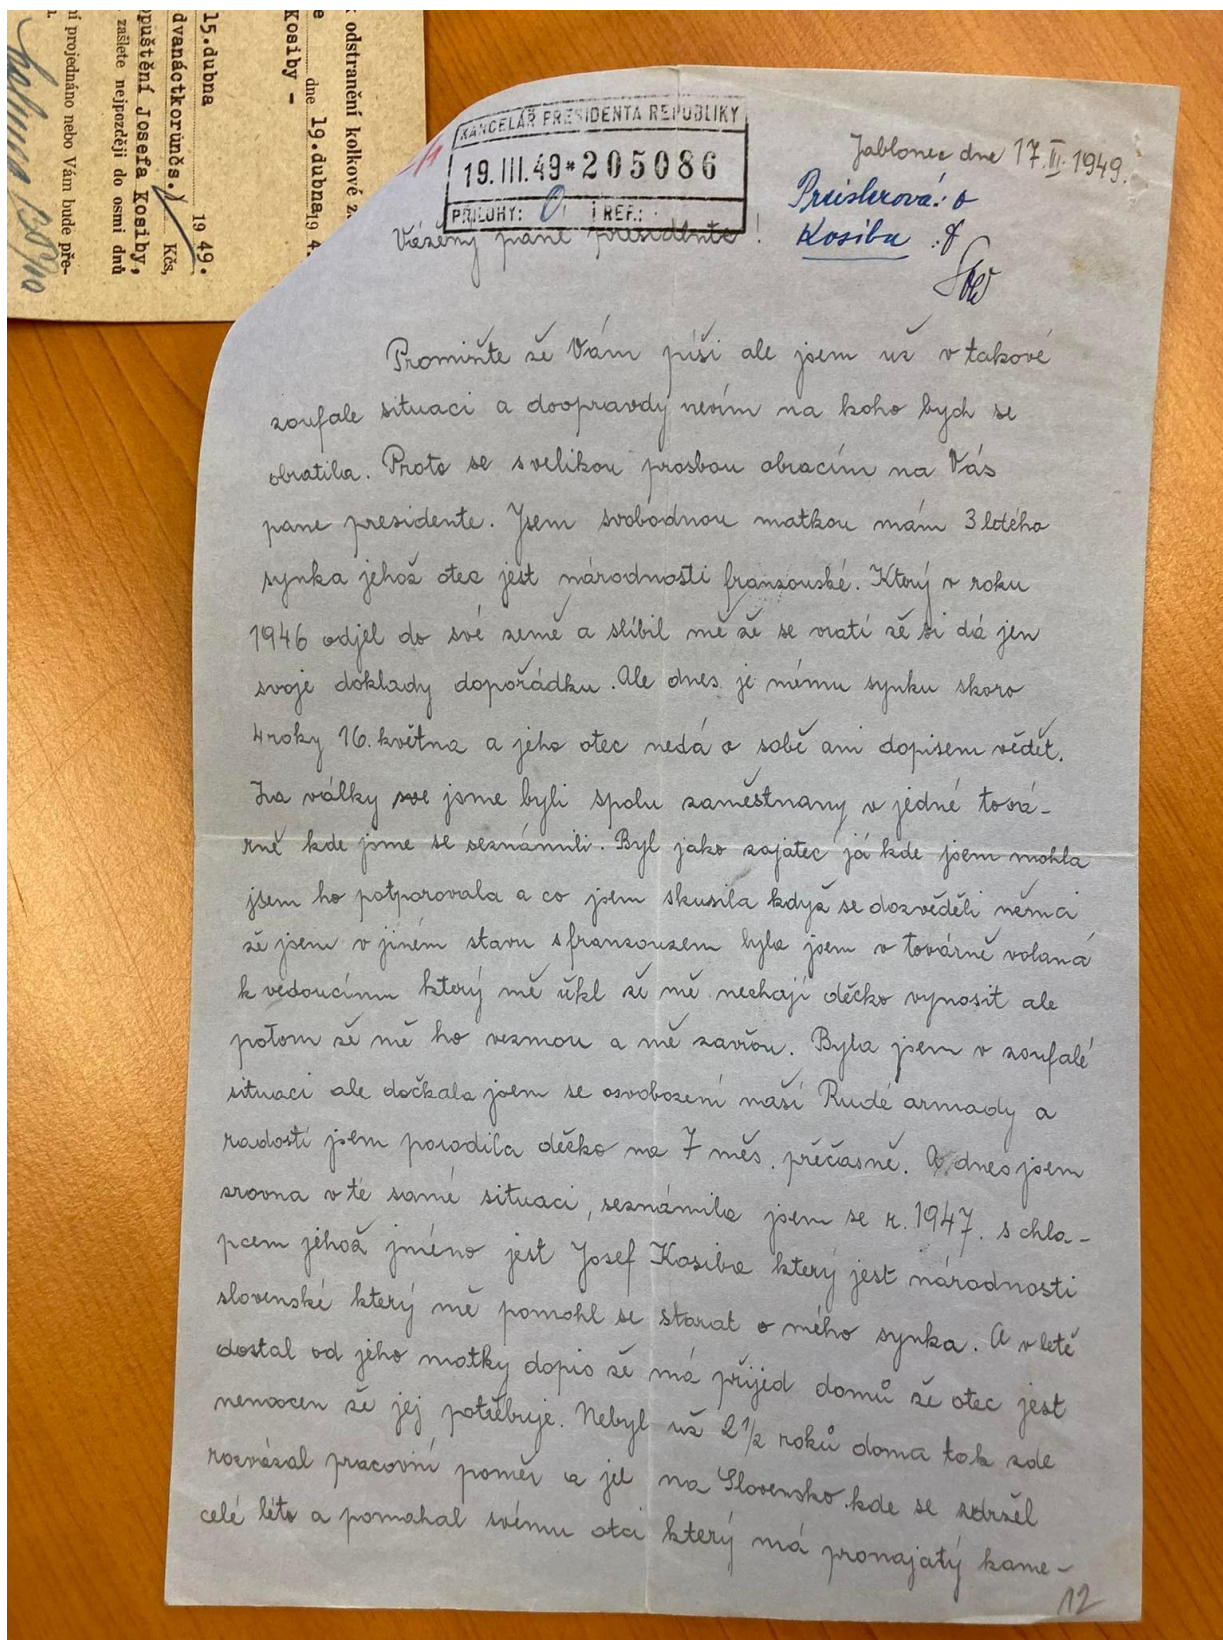 odstranění kolkové z
dne 19.dubna 19 4
Kosiby -
15.dubna 19 49.
dvanáctkorunč. Kčs,
opuštění Josefa Kosiby,
zašlete nejpozději do osmi dnů
ní projednáno nebo Vám bude pře-
KANCELÁŘ PRESIDENTA REPUBLIKY
19.III.49*205086
PŘÍLOHY: 0 REF.:
Jablonec dne 17.III.1949.
Preislerová: o
Kosiba :
Vážený pane presidente!
Promiňte že Vám píši ale jsem už v takové
zoufale situaci a doopravdy nevím na koho bych se
obratila. Proto se s velikou prosbou obracím na Vás
pane presidente. Jsem svobodnou matkou mám 3 letého
synka jehož otec jest národnosti franzouské. Který v roku
1946 odjel do své země a slíbil mě že se vratí že si dá jen
svoje doklady dopořádku. Ale dnes je mému synku skoro
4 roky 16. května a jeho otec nedá o sobě ani dopisem vědět.
Za války jsme byli spolu zaměstnany v jedné tová-
rně kde jsme se seznámili. Byl jako zajatec já kde jsem mohla
jsem ho potporovala a co jsem skusila když se dozvěděli němci
že jsem v jiném stavu s franzouzem byla jsem v továrně volaná
k vedoucímu který mě řikl že mě nechají děcko vynosit ale
potom že mě ho vezmou a mě zavřou. Byla jsem v zoufalé
situaci ale dočkala jsem se osvobození naší Rudé armady a
radostí jsem porodila děcko na 7 měs. přéčasně. A dnes jsem
zrovna v té samé situaci, seznámila jsem se r. 1947. s chla-
pcem jéhož jméno jest Josef Kosiba který jest národnosti
slovenské který mě pomohl se starat o mého synka. A v letě
dostal od jeho matky dopis že má přijed domů že otec jest
nemocen že jej potřebuje. Nebyl už 2 1/2 roků doma tak zde
rozvázal pracovní poměr a jel na Slovensko kde se zdržel
celé léto a pomahal svému otci který má pronajatý kame-
12